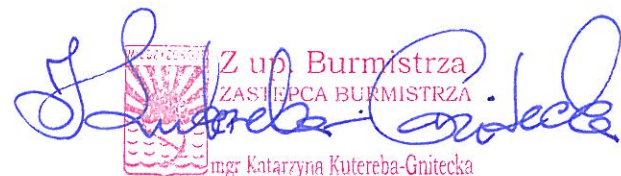 Z up. Burmistrza
ZASTĘPCA BURMISTRZA
mgr Katarzyna Kutereba-Gnitecka